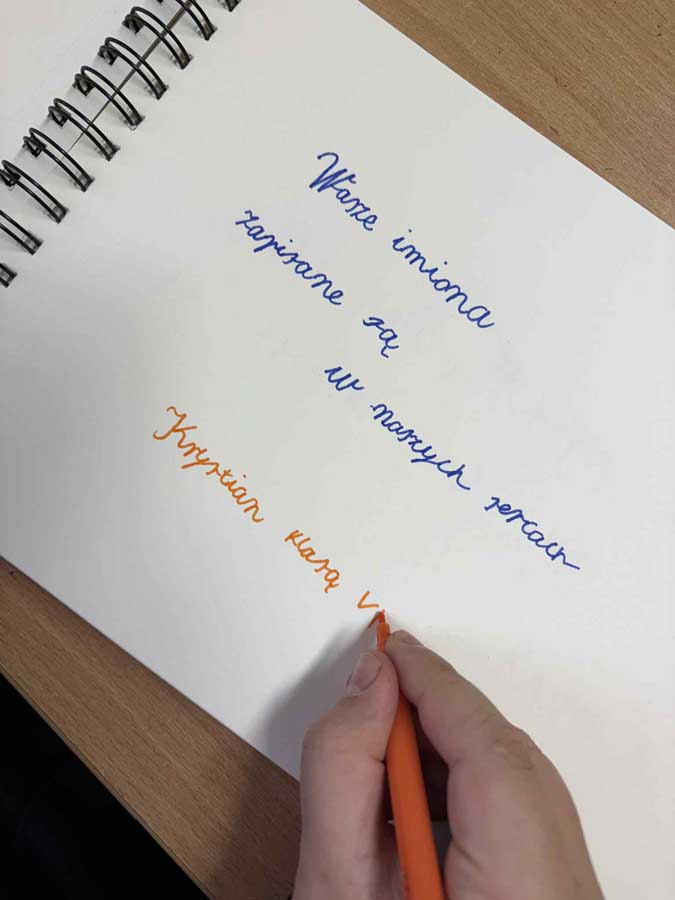 Wasze imiona
zapisane są
w naszych sercach
Krystian klasą V